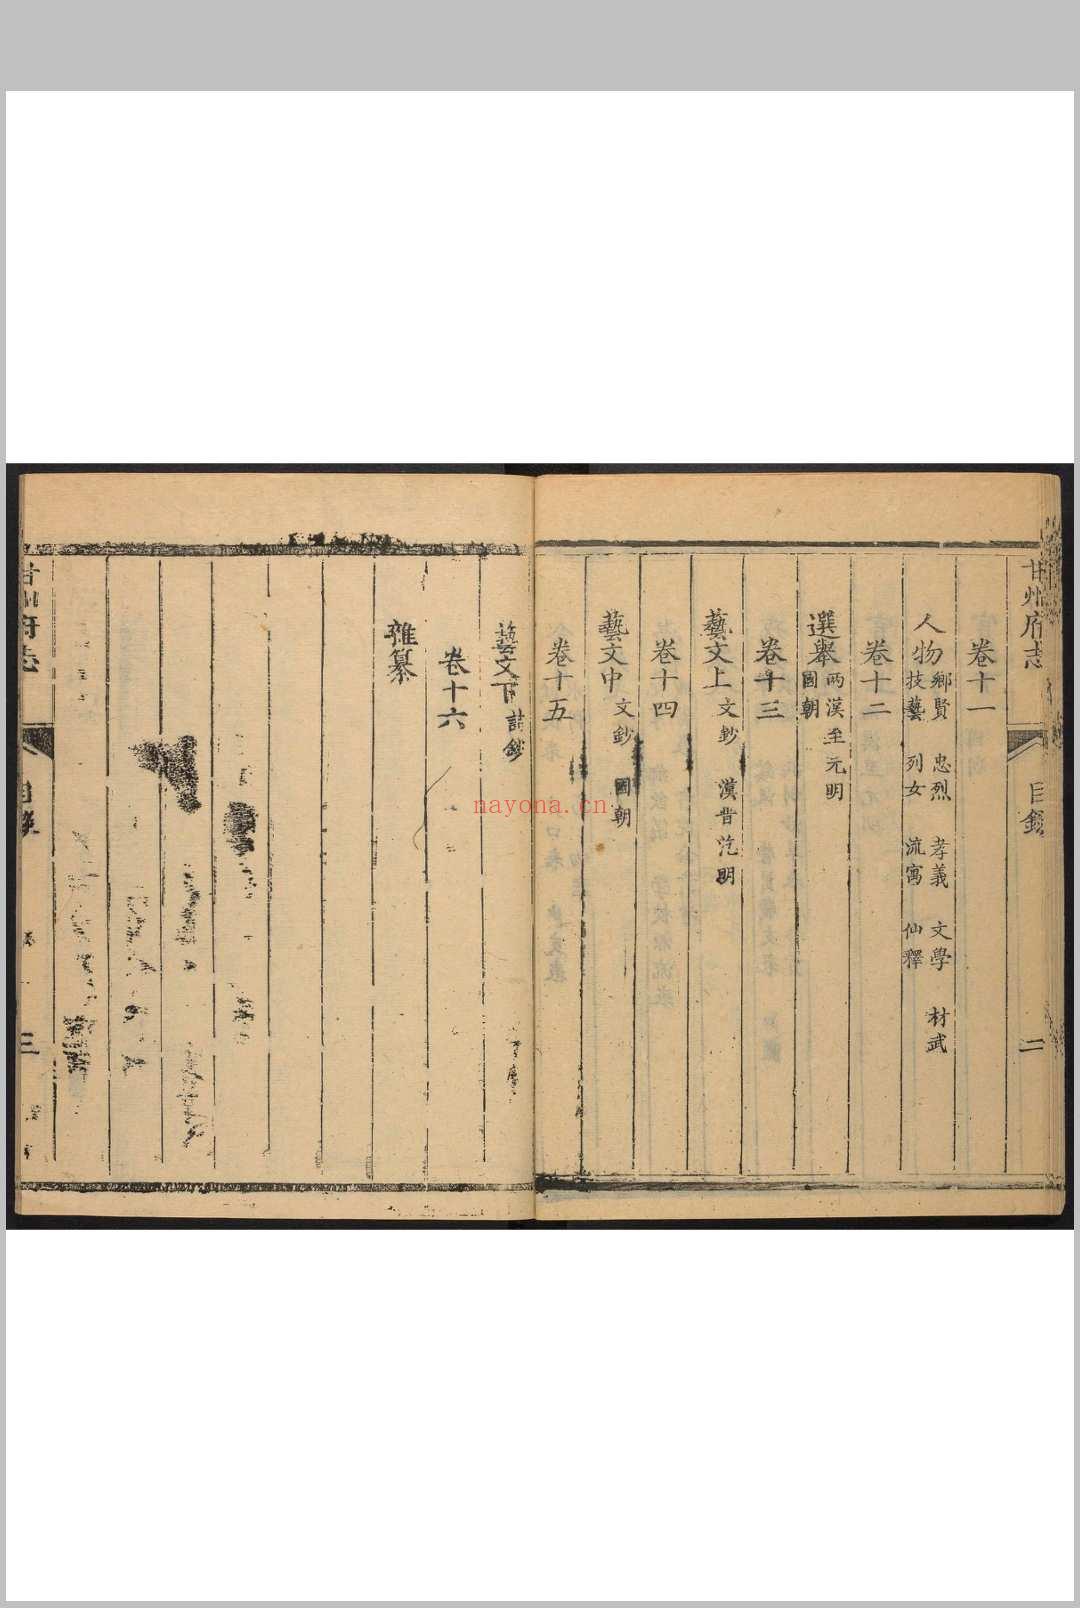 甘州府志 目錄 二
卷十一
人物 鄉賢 忠烈 孝義 文學 材武
技藝 列女 流寓 仙釋
卷十二
選舉 兩漢至元明
國朝
卷十三
藝文上 文鈔 漢晉 明
卷十四
藝文中 文鈔 國朝
卷十五
藝文下 詩鈔
卷十六
雜纂
甘州府志 目錄 三
nayona.cn